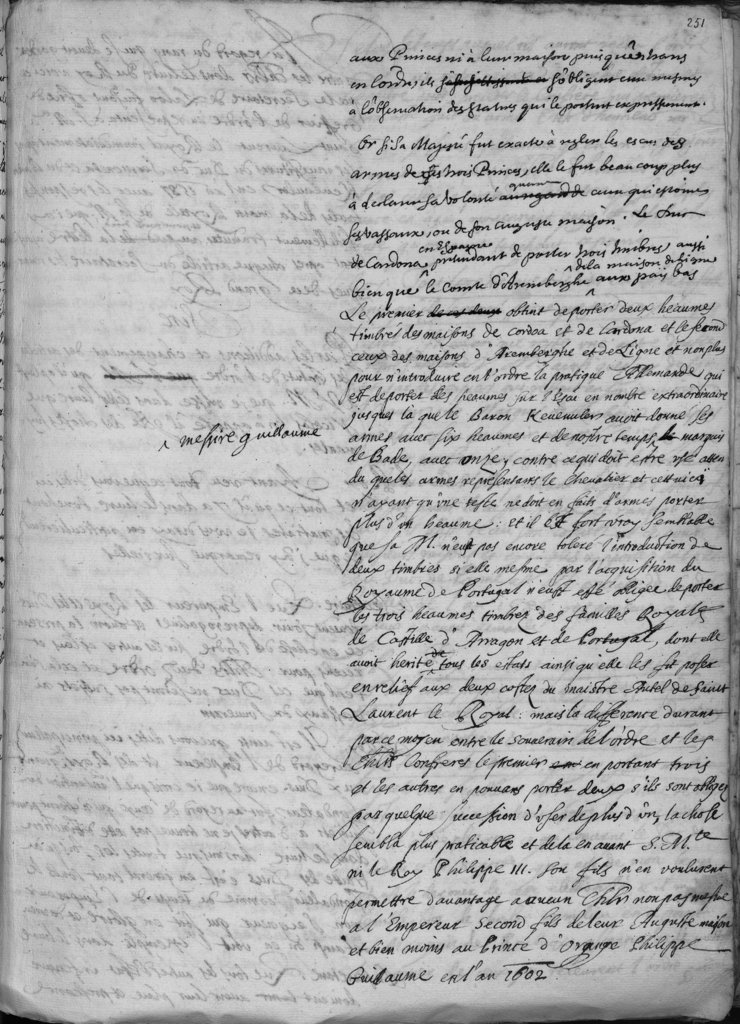 251
aux Princes ni à leur maison puisqu'entrans
en lordre, ils s'obligent eux mesmes
à l'observation des statuts qui le portent expressement.
Or si Sa Majesté fut exacte à regler les escus des
armes de ces trois Princes, elle le fut beaucoup plus
à declarer sa volonté quant à ceux qui estoient
ses vassaux, ou de son auguste maison. Le Duc
de Cardona en Espagne pretendant de porter trois timbres, aussi
bien que le Comte d'Aremberghe de la maison de Ligne aux païs bas
Le premier obtint de porter deux heaumes
timbrés des maisons de Cordoa et de Cardona et le second
ceux des maisons d'Aremberghe et de Ligne et non plus
pour n'introduire en l'ordre la pratique Allemande, qui
est de porter des heaumes sur l'escu en nombre extraordinaire
jusques la que le Baron Kevenuler avoit donné ses
armes avec six heaumes et de nostre temps le marquis
^ messire guillaume
de Bade, avec onze, contre ce qui doit estre usé atten
du que les armes representans le Chevalier et cettuicy
n'ayant qu'une teste ne doit en faits d'armes porter
plus d'un heaume: et il est fort vray semblable
que sa M. n'eut pas encore toleré l'introduction de
deux timbres si elle mesme par l'acquisition du
Royaume de Portugal n'eust esté obligée de porter
les trois heaumes timbrez des familles Royales
de Castille d'Arragon et de Portugal, dont elle
avoit herité de tous les estats ainsi qu'elle les fit poser
en relief aux deux costés du maistre Autel de Saint
Laurent le Royal: mais la difference durant
par ce moyen entre le souverain de l'ordre et les
Chlrs Confreres le premier en portant trois
et les autres en pouvans porter deux s'ils sont obligez
par quelque succession d'user de plus d'un, la chose
sembla plus praticable et dela en avant S. M.te
ni le Roy Philippe III. son fils n'en voulurent
permettre davantage a aucun Chlr non pas mesme
a l'Empereur second fils de leur Auguste maison
et bien moins au Prince d'Orange Philippe
Guillaume en l'an 1602.